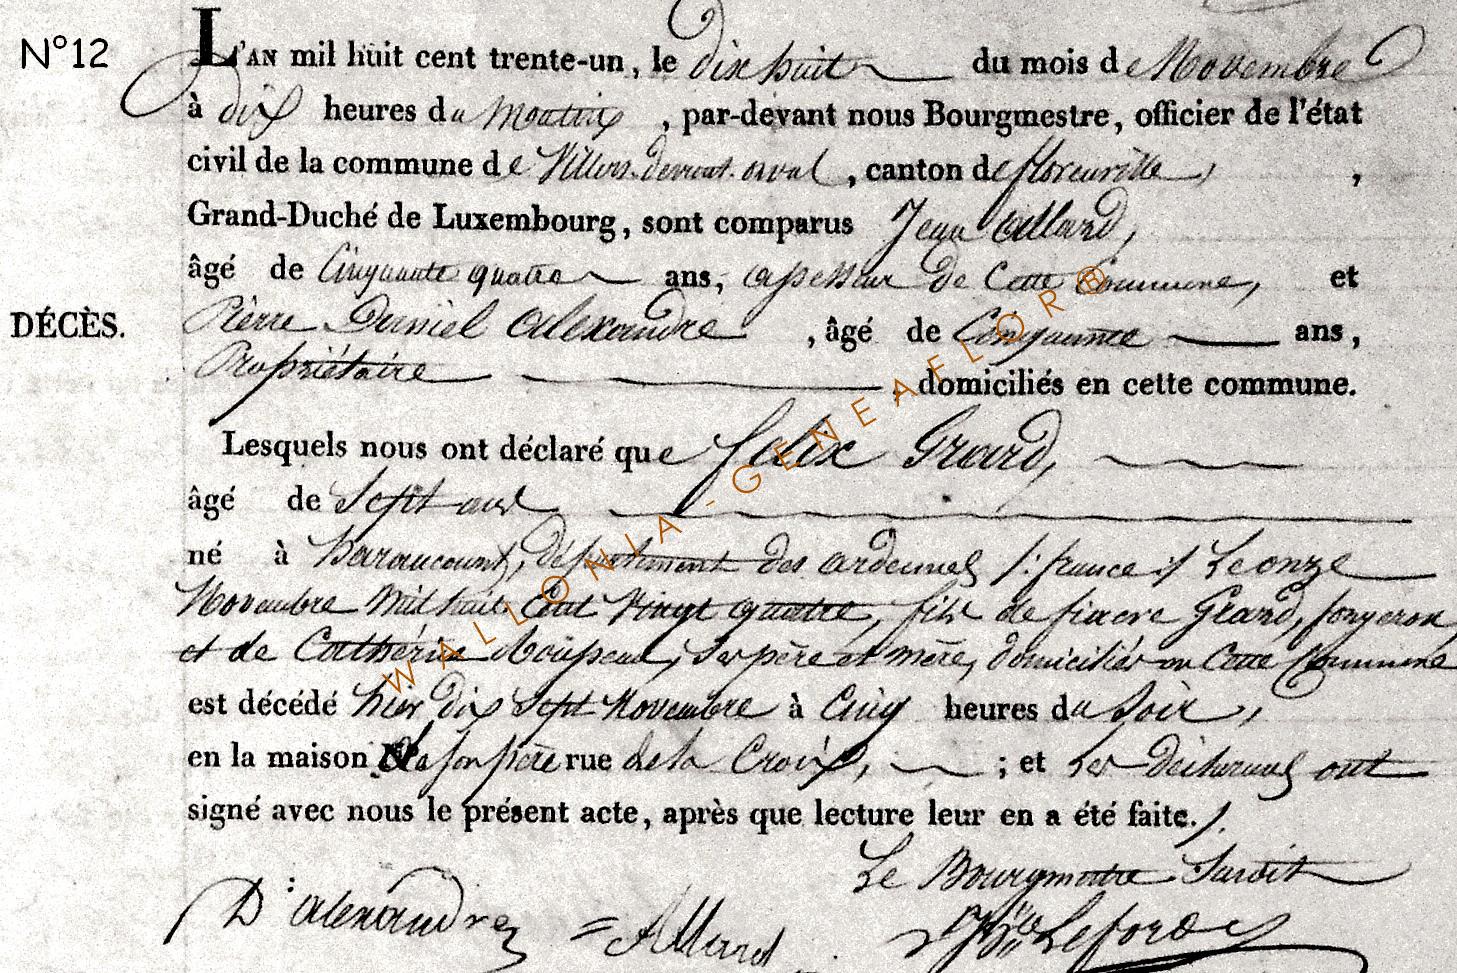 N°12
L'AN mil huit cent trente-un, le dix huit du mois de Novembre
à dix heures du matin, par-devant nous Bourgmestre, officier de l'état
civil de la commune de Villers-devant-orval, canton de florenville,
Grand-Duché de Luxembourg, sont comparus Jean Allard,
âgé de Cinquante quatre ans, assesseur de Cette Commune, et
DÉCÈS.
Pierre Daniel Alexandre, âgé de Cinquante ans,
Propriétaire, domiciliés en cette commune.
Lesquels nous ont déclaré que felix Grard,
âgé de Sept ans
né à haraucourt, département des ardennes /: france :/ Le onze
Novembre Mil huit Cent Vingt quatre, fils de fiacre Grard, forgeron,
et de Cathérine, Ses père et mère, domiciliés en Cette Commune
est décédé hier dix Sept Novembre à Cinq heures du Soir,
en la maison de son père rue de la Croix, ; et les déclarans ont
signé avec nous le présent acte, après que lecture leur en a été faite./.
Le Bourgmestre Suroit
D: alexandre = Allard
WALLONIA-GENEAFLOR®